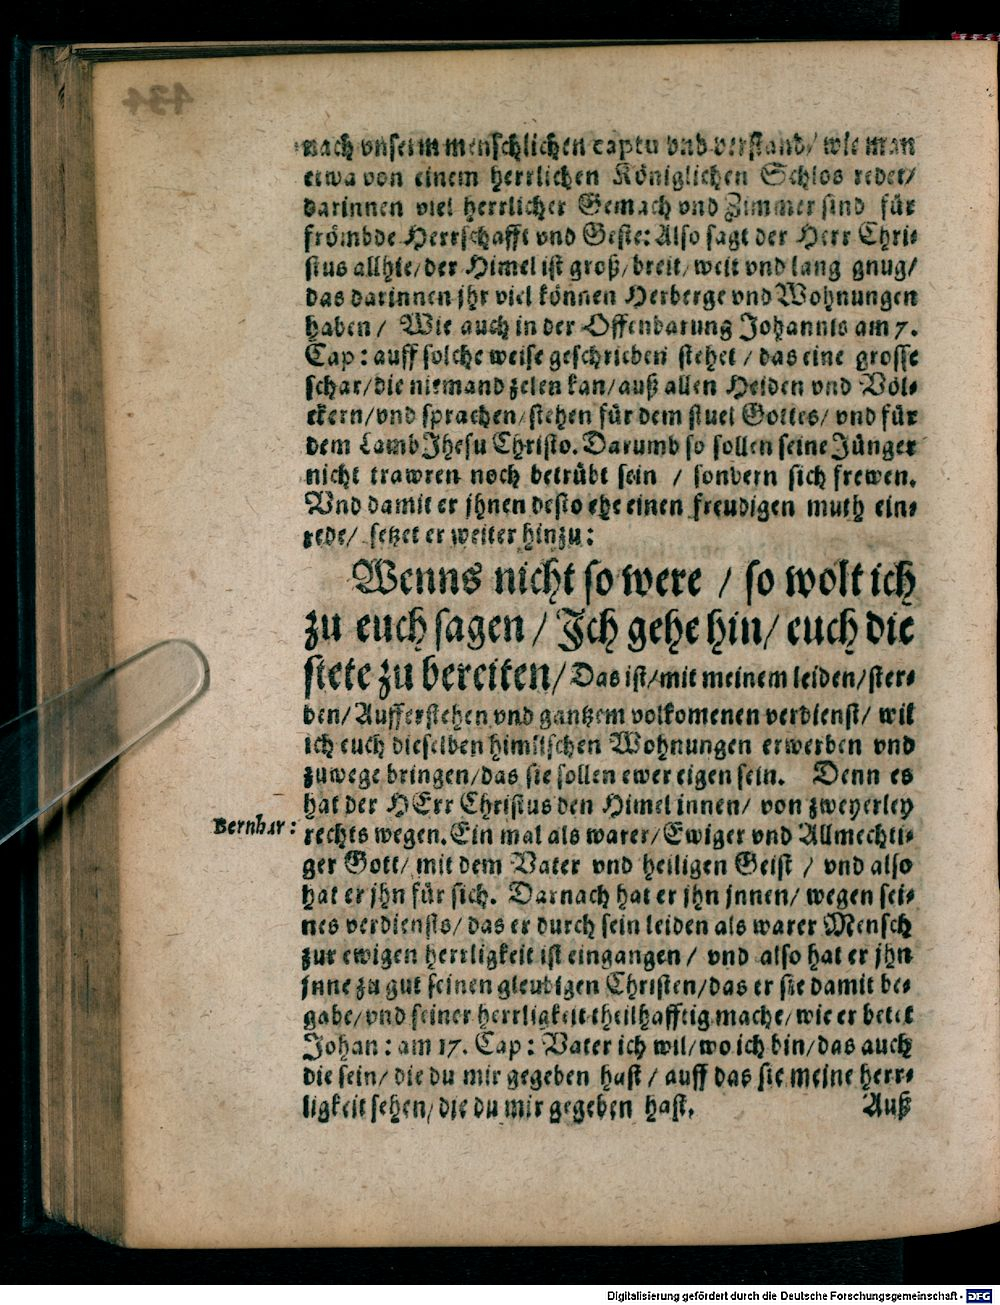 nach vnserm menschlichen captu vnd verstand/ wie man
etwa von einem herrlichen Königlichen Schlos redet/
darinnen viel herrlicher Gemach vnd Zimmer sind für
frömbde Herrschafft vnd Geste: Also sagt der Herr Chri-
stus allhie/ der Himel ist groß/ breit/ weit vnd lang gnug/
das darinnen jhr viel können Herberge vnd Wohnungen
haben/ Wie auch in der Offenbarung Johannis am 7.
Cap: auff solche weise geschrieben stehet/ das eine grosse
schar/ die niemand zelen kan/ auß allen Heiden vnd Völ-
ckern/ vnd sprachen/ stehen für dem stuel Gottes/ vnd für
dem Lamb Jhesu Christo. Darumb so sollen seine Jünger
nicht trawren noch betrübt sein / sondern sich frewen.
Vnd damit er jhnen desto ehe einen freudigen muth ein-
rede/ setzet er weiter hinzu:
Wenns nicht so were / so wolt ich
zu euch sagen / Ich gehe hin/ euch die
stete zu bereiten/ Das ist/ mit meinem leiden/ ster-
ben/ Aufferstehen vnd gantzem volkomenen verdienst/ wil
ich euch dieselben himlischen Wohnungen erwerben vnd
zuwege bringen/ das sie sollen ewer eigen sein. Denn es
hat der HErr Christus den Himel innen/ von zweyerley
Bernhar:
rechts wegen. Ein mal als warer/ Ewiger vnd Allmechti-
ger Gott/ mit dem Vater vnd heiligen Geist / vnd also
hat er jhn für sich. Darnach hat er jhn jnnen/ wegen sei-
nes verdiensts/ das er durch sein leiden als warer Mensch
zur ewigen herrligkeit ist eingangen/ vnd also hat er jhn
jnne zu gut seinen gleubigen Christen/ das er sie damit be-
gabe/ vnd seiner herrligkeit theilhafftig mache/ wie er betet
Johan: am 17. Cap: Vater ich wil/ wo ich bin/ das auch
die sein/ die du mir gegeben hast / auff das sie meine herr-
ligkeit sehen/ die du mir gegeben hast.
Auß
Digitalisierung gefördert durch die Deutsche Forschungsgemeinschaft - DFG